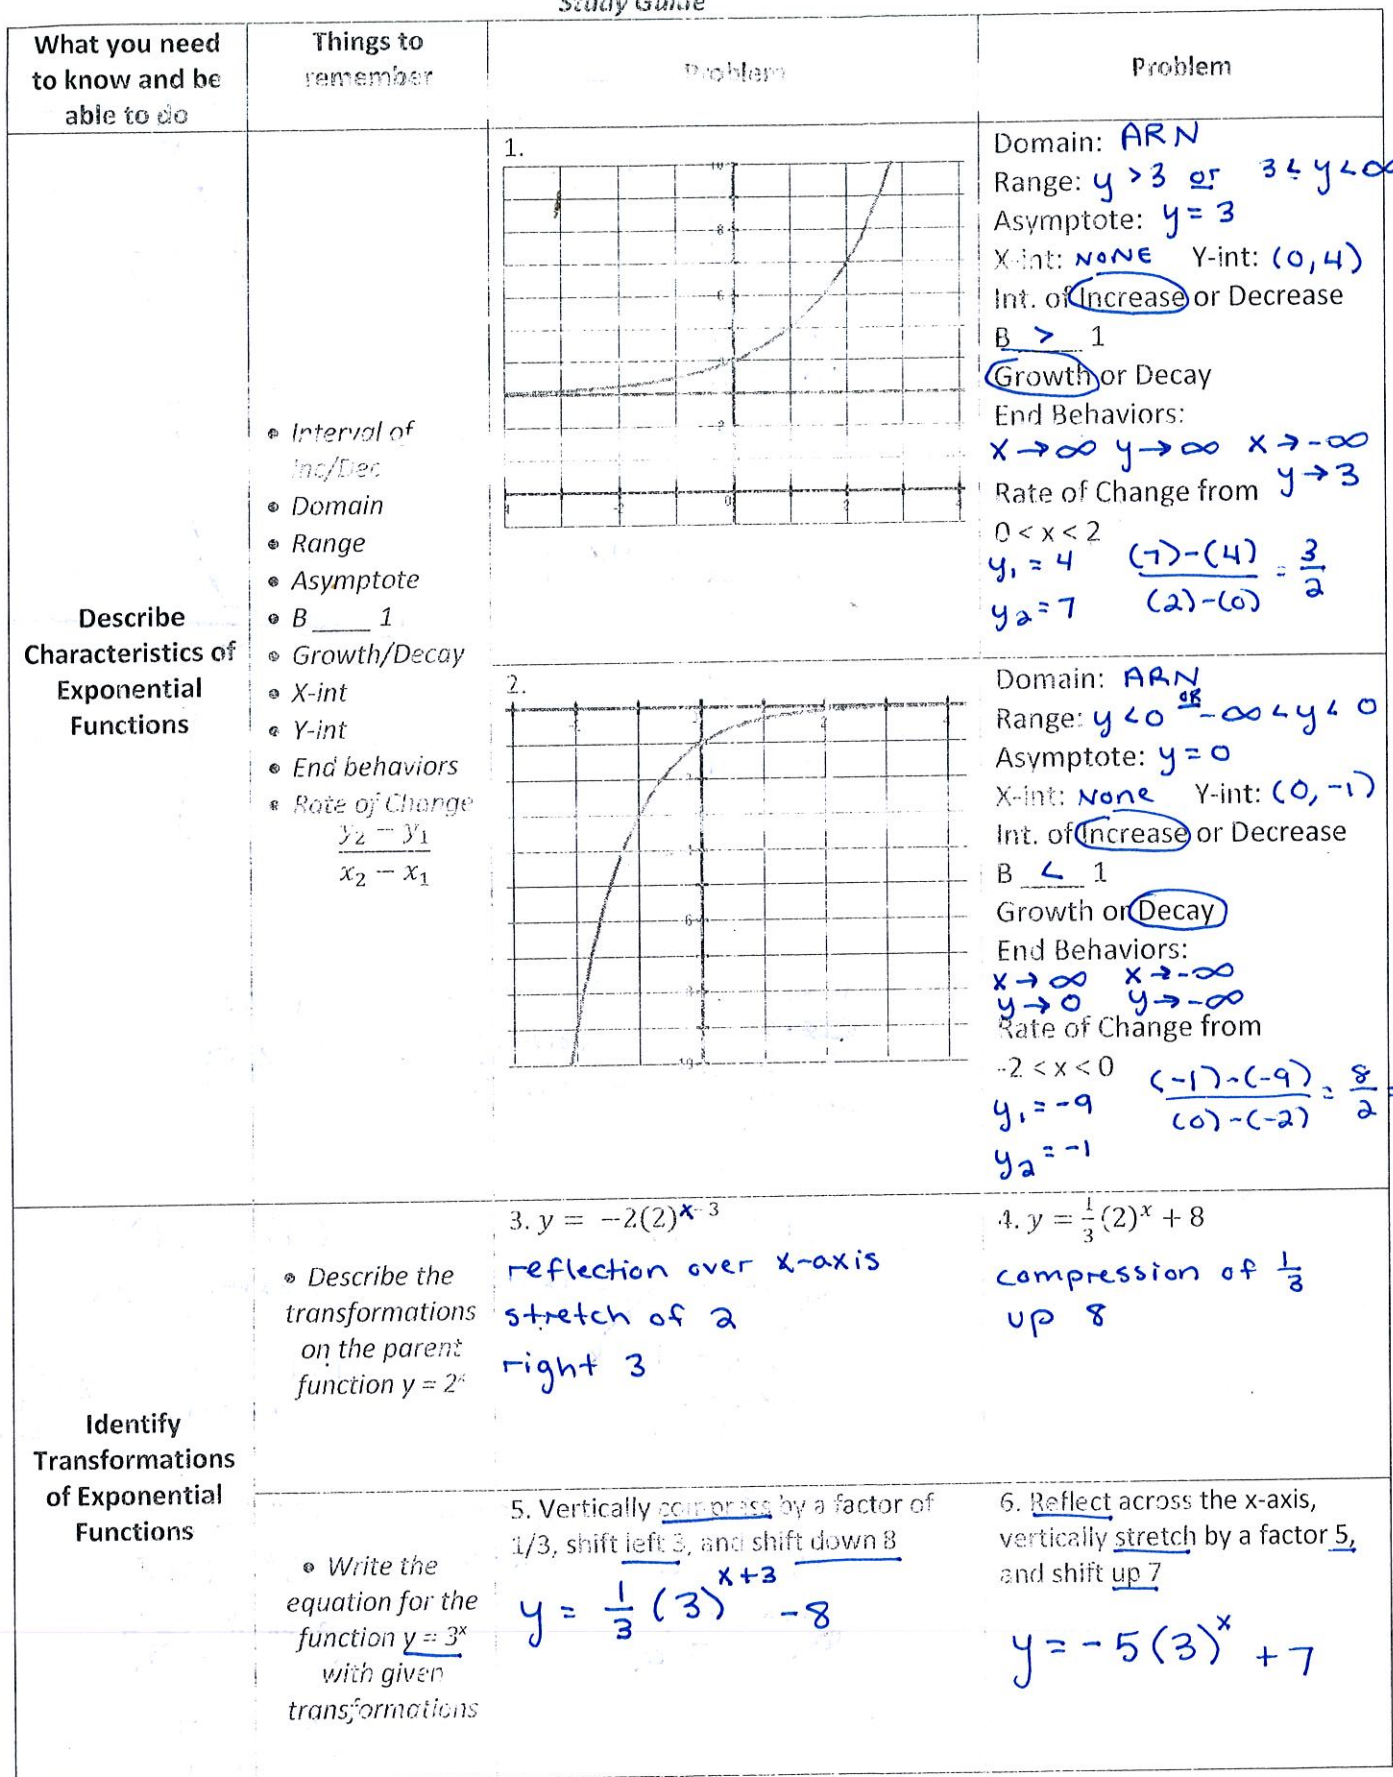 Study Guide
What you need to know and be able to do
Things to remember
Problem
Problem
Describe Characteristics of Exponential Functions
• Interval of Inc/Dec
• Domain
• Range
• Asymptote
• B ____ 1
• Growth/Decay
• X-int
• Y-int
• End behaviors
• Rate of Change
y₂ − y₁
x₂ − x₁
1.
10
8
6
2
0
2
Domain: ARN
Range: y > 3 or 3 < y < ∞
Asymptote: y = 3
X-int: NONE Y-int: (0,4)
Int. of Increase or Decrease
B > 1
Growth or Decay
End Behaviors:
x → ∞ y → ∞ x → -∞
y → 3
Rate of Change from
0 < x < 2
y₁ = 4 (7)-(4) / (2)-(0) = 3/2
y₂ = 7
2.
6
8
Domain: ARN
Range: y < 0 OR -∞ < y < 0
Asymptote: y = 0
X-int: None Y-int: (0, -1)
Int. of Increase or Decrease
B < 1
Growth or Decay
End Behaviors:
x → ∞ x → -∞
y → 0 y → -∞
Rate of Change from
-2 < x < 0
y₁ = -9 (-1)-(-9) / (0)-(-2) = 8/2 =
y₂ = -1
Identify Transformations of Exponential Functions
• Describe the
transformations
on the parent
function y = 2ˣ
3. y = −2(2)ˣ⁻³
reflection over x-axis
stretch of 2
right 3
4. y = 1/3(2)ˣ + 8
compression of 1/3
up 8
• Write the
equation for the
function y = 3ˣ
with given
transformations
5. Vertically compress by a factor of
1/3, shift left 3, and shift down 8
y = 1/3 (3)ˣ⁺³ - 8
6. Reflect across the x-axis,
vertically stretch by a factor 5,
and shift up 7
y = -5(3)ˣ + 7